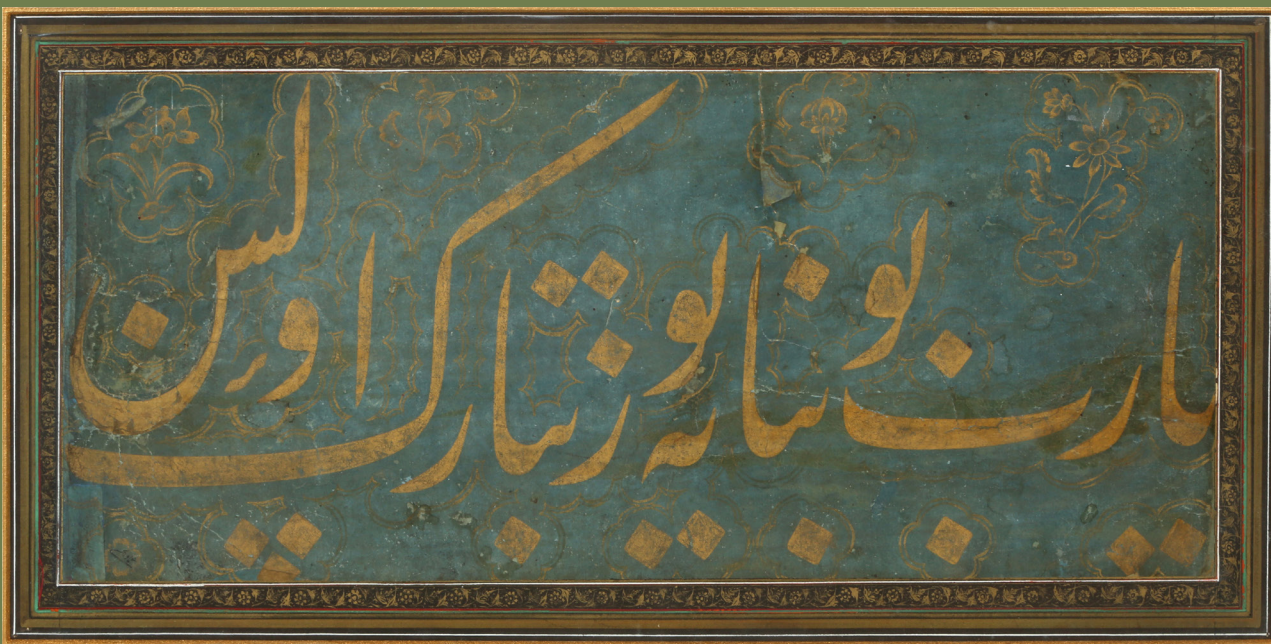 یارب بو بنایه یوز تبارک اولسن